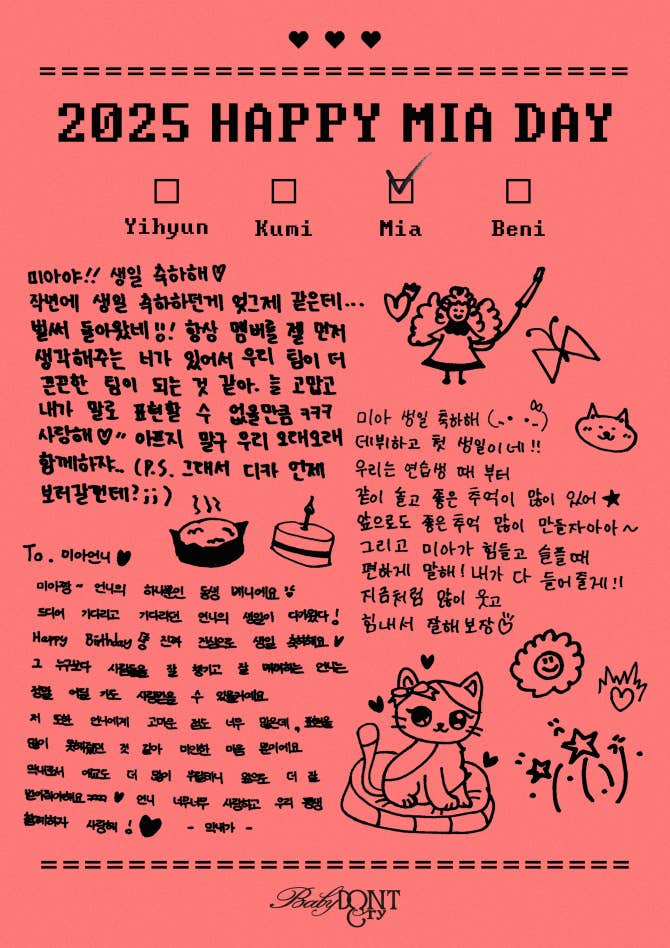 2025 HAPPY MIA DAY
Yihyun Kumi Mia Beni
미아야!! 생일 축하해♡
작년에 생일 축하하던게 엊그제 같은데...
벌써 돌아왔네!!! 항상 멤버를 젤 먼저
생각해주는 너가 있어서 우리 팀이 더
끈끈한 팀이 되는 것 같아. 늘 고맙고
내가 말로 표현할 수 없을만큼 ㅋㅋㅋ
사랑해♡" 아프지 말구 우리 오래오래
함께하쟈.. (P.S. 그래서 디카 언제
보러갈건데?;;)
미아 생일 축하해
데뷔하고 첫 생일이네!!
우리는 연습생 때 부터
같이 놀고 좋은 추억이 많이 있어★
앞으로도 좋은추억 많이 만들자아아~
그리고 미아가 힘들고 슬플때
편하게 말해! 내가 다 들어줄게!!
지금처럼 많이 웃고
힘내서 잘해보장
To. 미아언니♥
미아짱~ 언니의 하나뿐인 동생 베니에요
드디어 기다리고 기다리던 언니의 생일이 다가왔다!
Happy Birthday 진짜 진심으로 생일 축하해요♥
그 누구보다 사람들을 잘 챙기고 잘 언니는
정말 어딜 가도 사랑받을 수 있을거에요
저 또한 언니에게 고마운 점도 너무 많은데, 표현을
많이 못해줬던 것 같아 미안한 마음 뿐이에요
막내로서 애교도 더 많이 부릴테니 앞으로 더 잘
받아줘야해요 ♥ 언니 너무너무 사랑하고 우리 평생
함께하자 사랑해!♥ - 막내가 -
Baby DONT Cry